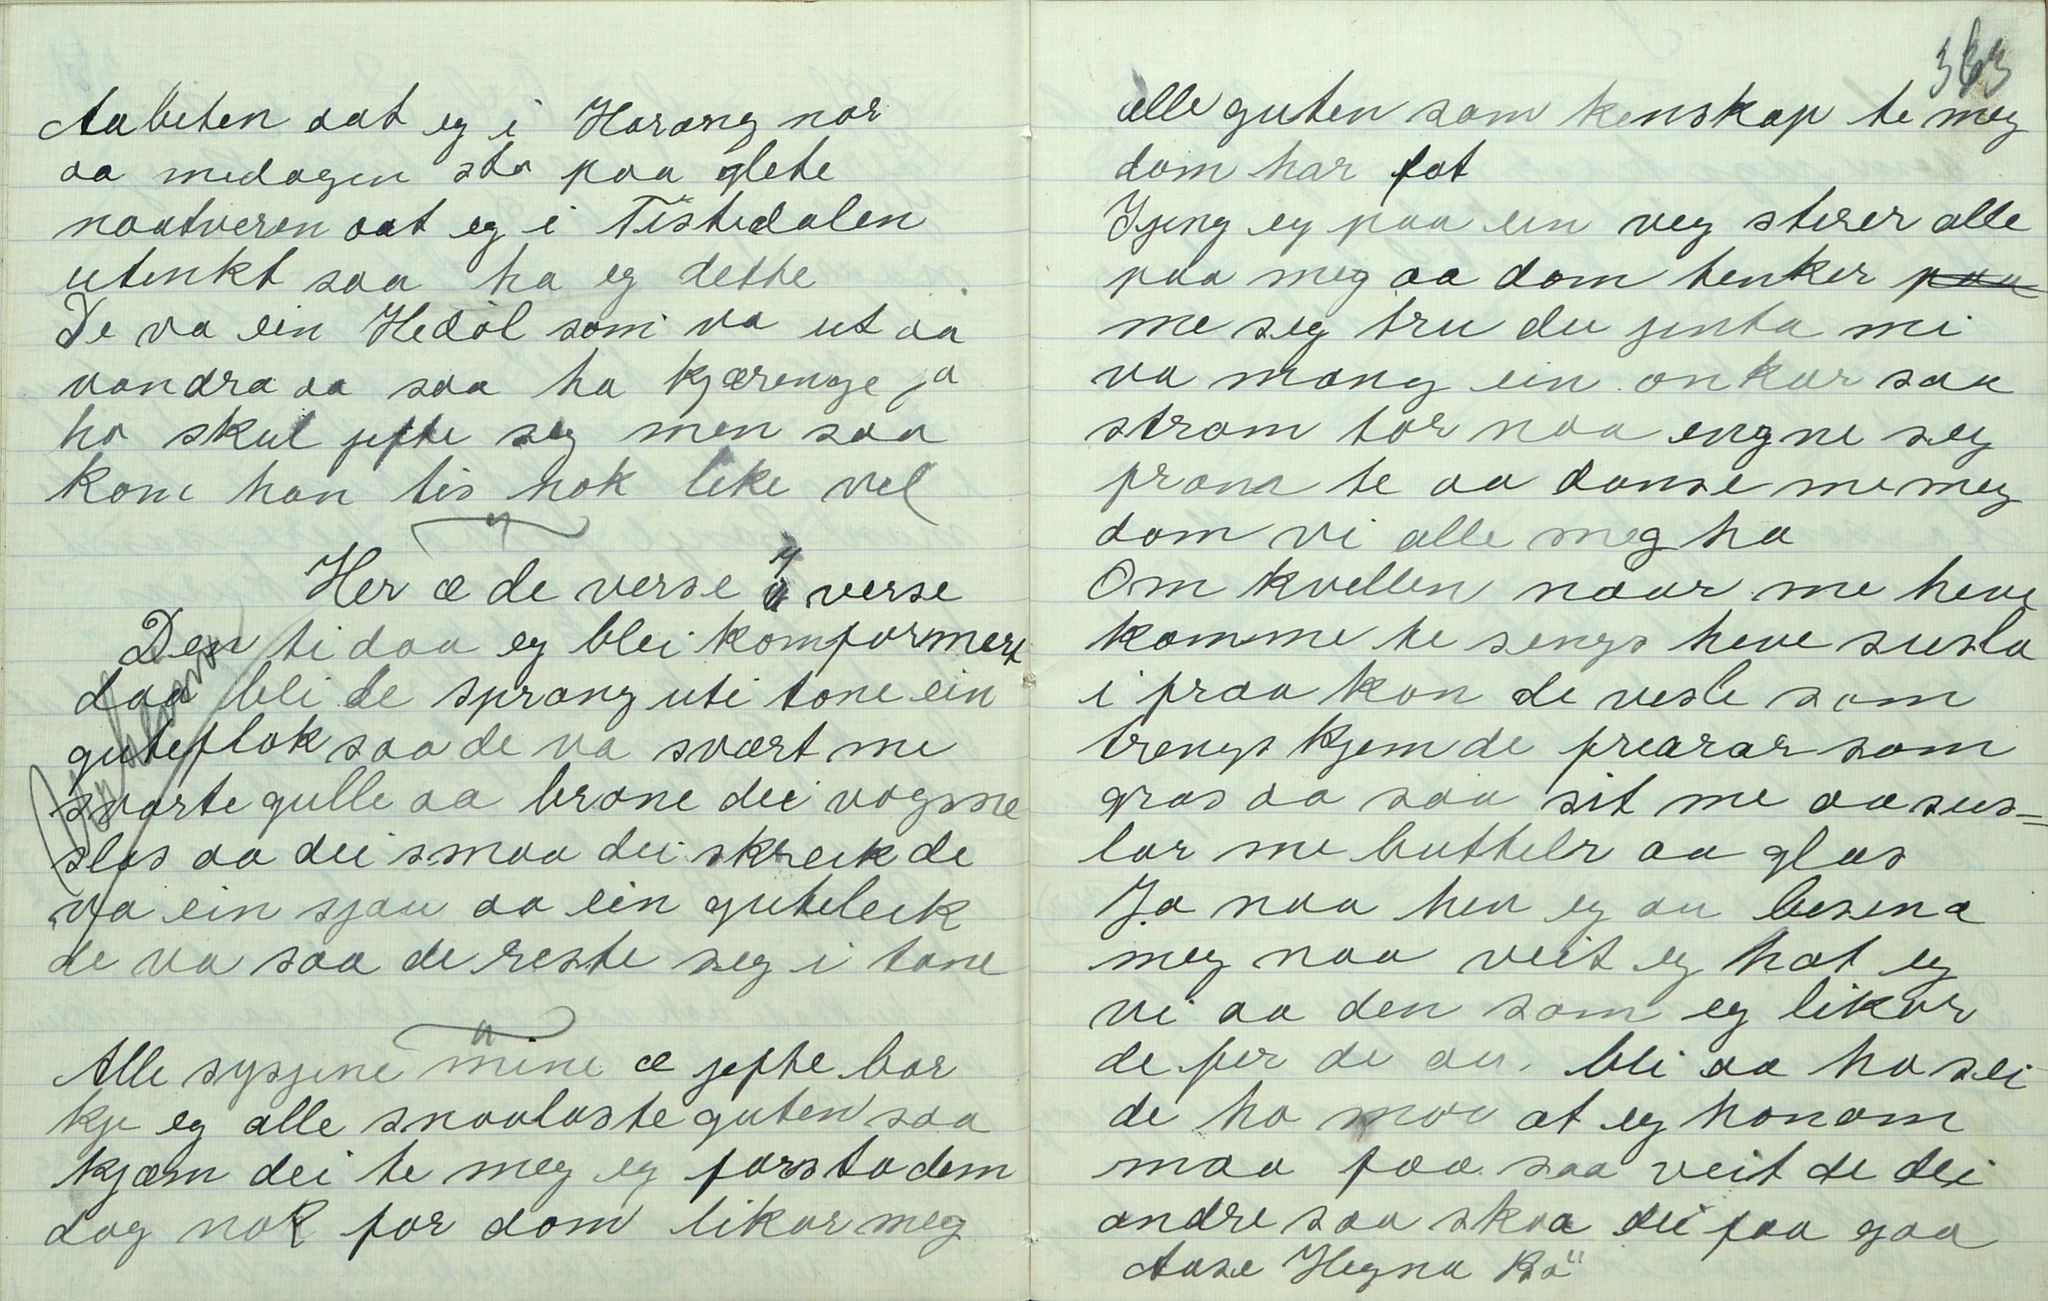 Aabeten aat eg i Horong nor
aa medagen sto paa glete
naatveren aat eg i Tistedalen
utenkt saa ha eg dette
De va ein Hedøl som va ut aa
vandra aa saa ha kjærenge ja
ho skul jefte seg men saa
kom han tis nok like vel
Her æ de verse y verse
Den ti daa eg blei komformert
daa bli de sprang uti tone ein
guteflok saa de va svært me
svarte gulle aa brone dei vogsne
slos aa dei smaa dei skreik de
va ein sjau aa ein guteleik
de va saa de reste seg i tone
Alle sysjene mine æ jefte bor
kje eg alle snaalaste guten saa
kjæm dei te meg eg forsto dem
dog nok for dom likar meg
363
alle guten som kenskap te meg
dom har fat
Gjeng eg paa ein veg stirer alle
paa meg aa dom tenker paa
me seg tru du jenta mi
va mang ein onkar saa
stram tor naa engne seg
fram te aa danse me meg
dom vi alle meg ha
Om kvellen naar me heve
komme te sengs heve susla
i fraa kan de vesle som
trengs kjem de frearar som
gras aa saa sit me aa sus=
lar me buttelr aa glas
Ja naa hev eg au besena
meg naa veit eg hat eg
vi aa den som eg likar
de fer de au bli aa ha sei
de ha mor at eg honom
maa faa saa veit de dei
andre saa skaa dei faa gaa
Aase Hegna Bø"